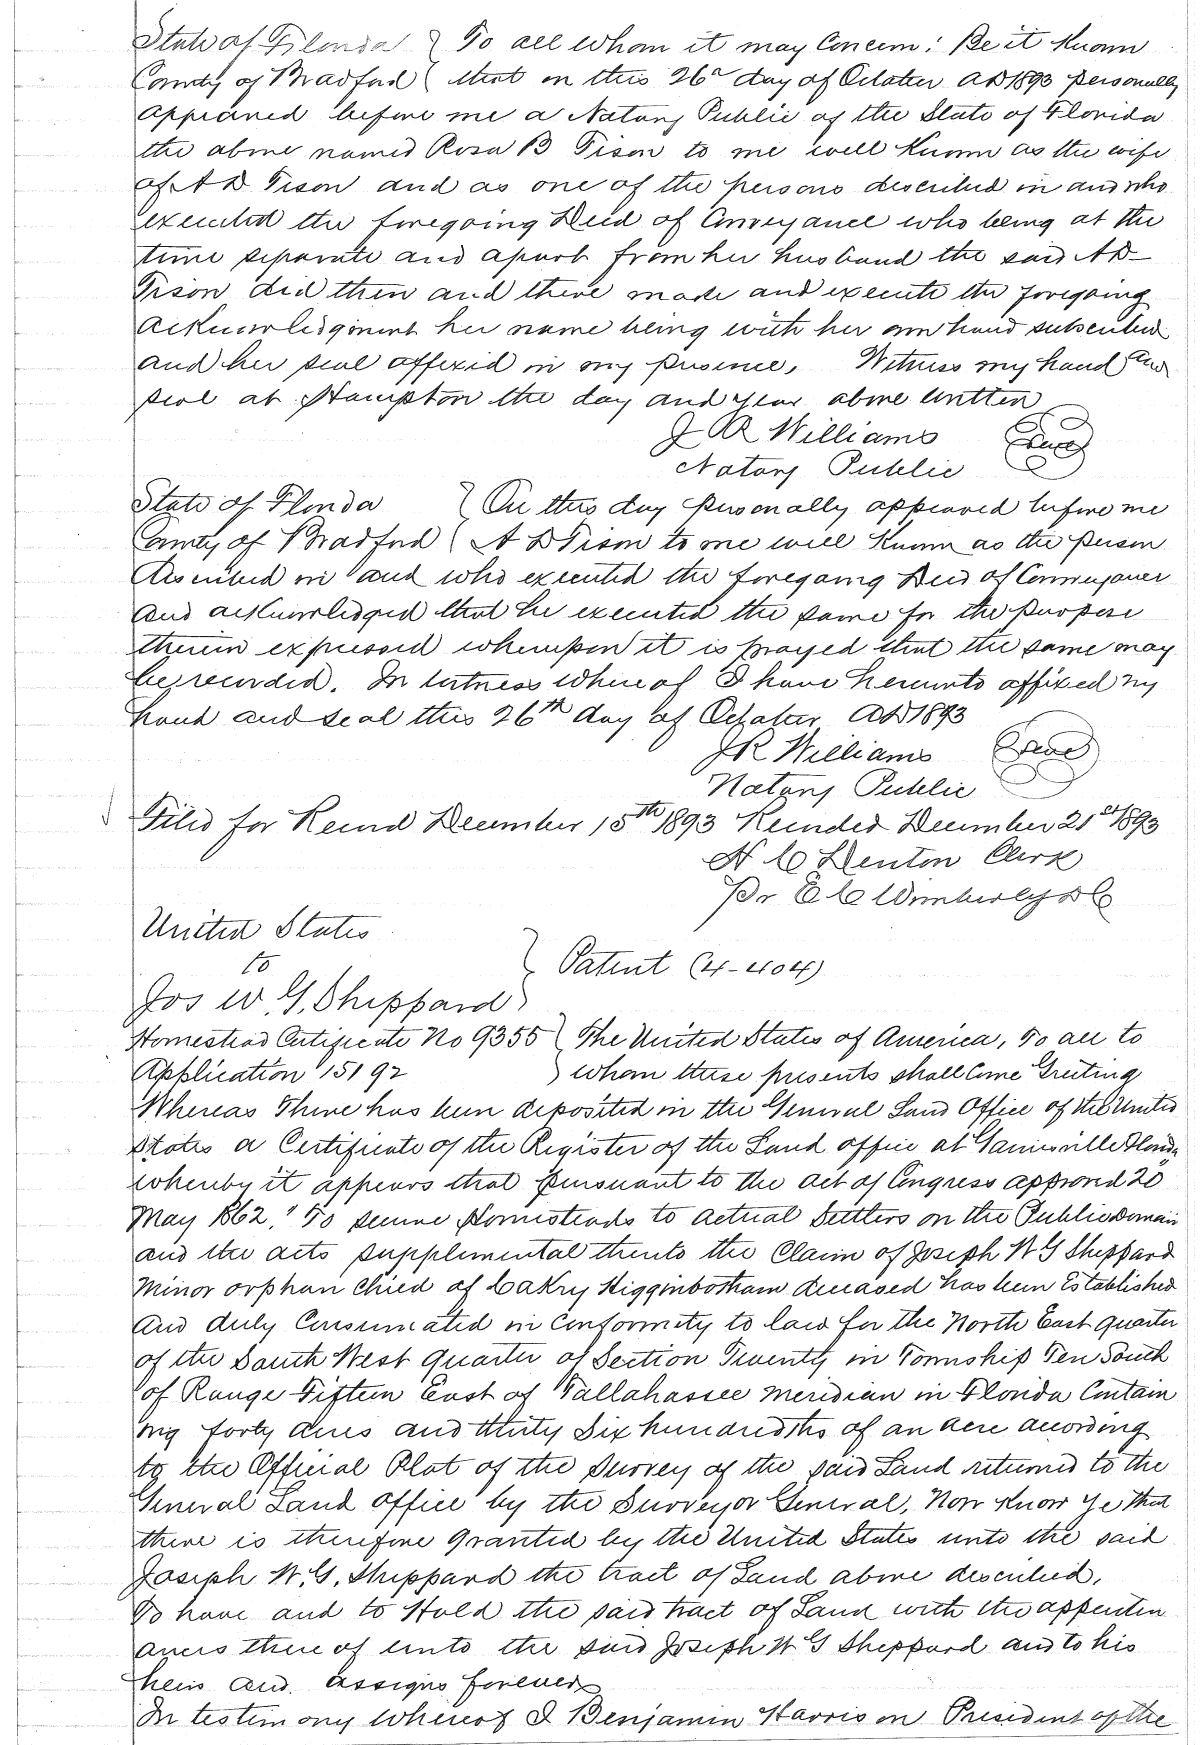 State of Florida } To all whom it may Concern: Be it Known
County of Bradford { that on this 26th day of October AD 1893 personally
appeared before me a Notary Public of the State of Florida
the above named Rosa B Tison to me well Known as the wife
of A D Tison and as one of the persons described in and who
executed the foregoing Deed of Conveyance who being at the
time separate and apart from her husband the said A D
Tison did then and there made and execute the foregoing
acknowledgment her name being with her own hand subscribed
and her seal affixed in my presence, Witness my hand and
seal at Hampton the day and year above written
J R Williams Seal
Notary Public
State of Florida } On this day personally appeared before me
County of Bradford { A D Tison to me well Known as the person
described in and who executed the foregoing Deed of Conveyance
and acknowledged that he executed the same for the purpose
therein expressed whereupon it is prayed that the same may
be recorded. In witness whereof I have hereunto affixed my
hand and seal this 26th day of October AD 1893
J R Williams Seal
Notary Public
Filed for Record December 15th 1893 Recorded December 21st 1893
N C Denton Clerk
Pr E C Wimberly D C
United States
to } Patent (4-404)
Jos W. G. Sheppard
Homestead Certificate No 9355 } The United States of America, To all to
Application 15192 } whom these presents shall Come Greeting
Whereas There has been deposited in the General Land Office of the United
States a Certificate of the Register of the Land office at Gainesville Florida,
whereby it appears that pursuant to the act of Congress approved 20"
May 1862, "To secure Homesteads to actual Settlers on the Public Domain
and the acts supplemental thereto the Claim of Joseph W G Sheppard
minor orphan Child of Higginbotham deceased has been Established
and duly Consumated in Conformity to law for the North East quarter
of the South West quarter of Section Twenty in Township Ten South
of Range Fifteen East of Tallahassee meridian in Florida Contain
ing forty acres and thirty Six hundredths of an acre according
to the Official Plat of the Survey of the said Land returned to the
General Land office by the Surveyor General, Now Know Ye that
there is therefore granted by the United States unto the said
Joseph W. G. Sheppard the tract of Land above described,
To have and to Hold the said tract of Land with the appurten
ances there of unto the said Joseph W G Sheppard and to his
heirs and assigns forever
In testimony Whereof I Benjamin Harrison President of the